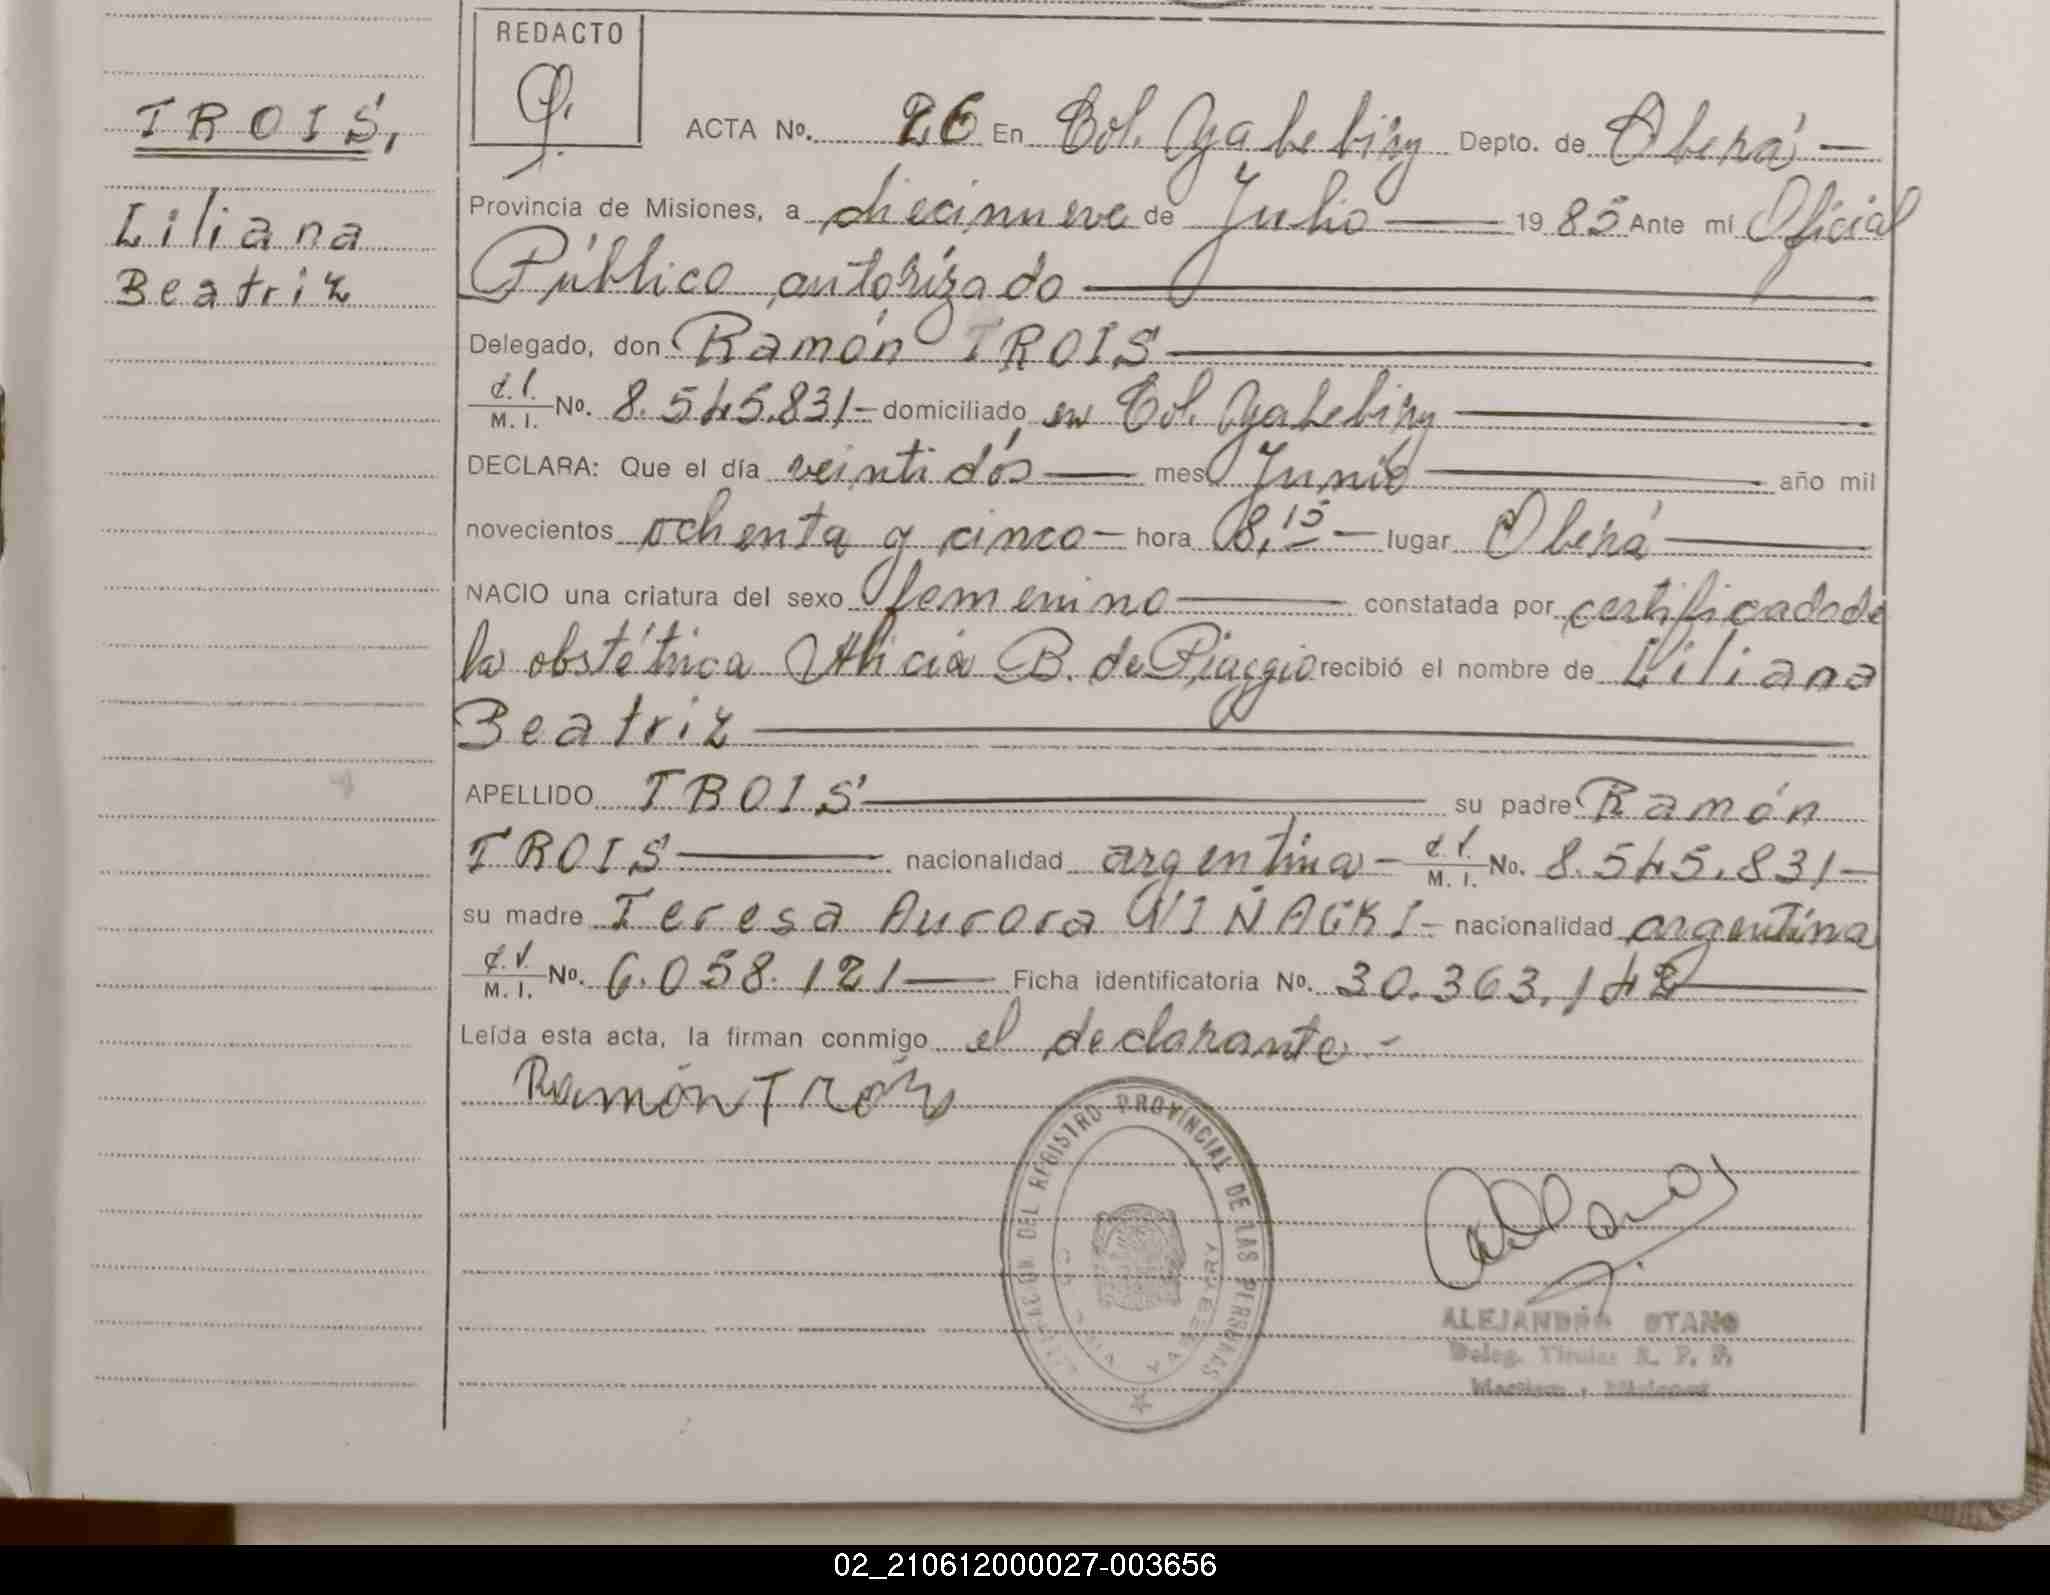 REDACTO
TROIS,
Liliana
Beatriz
ACTA No. 26 En Col. Yabebiry Depto. de Oberá —
Provincia de Misiones, a diecinueve de Julio — 19 85 Ante mí Oficial
Público autorizado —
Delegado, don Ramón TROIS —
C.I. M. I. No. 8.545.831- domiciliado en Col. Yabebiry —
DECLARA: Que el día veintidós — mes Junio — año mil
novecientos ochenta y cinco - hora 8,15 - lugar Oberá —
NACIO una criatura del sexo femenino — constatada por certificado de
la obstétrica Alicia B. de Piaggio recibió el nombre de Liliana
Beatriz —
APELLIDO TROIS — su padre Ramón
TROIS — nacionalidad argentina - C.I. M. I. No. 8.545.831-
su madre Teresa Aurora nacionalidad argentina
C.I. M. I. No. 6.058.121 — Ficha identificatoria No. 30.363.142 —
Leída esta acta, la firman conmigo el declarante.-
Ramón Trois
DEL REGISTRO PROVINCIAL DE LAS PERSONAS
ALEJANDRO OTAÑO
Deleg. Titular R. P. P.
Misiones
02_210612000027-003656